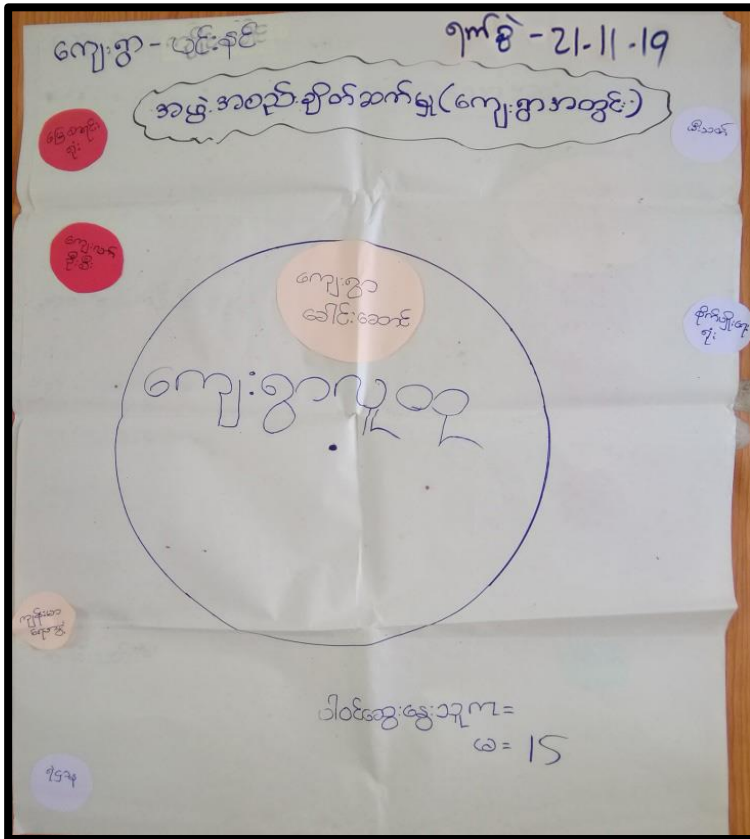 ကျေးရွာ - ပျဉ်းနင်း
ရက်စွဲ - 21.11.19
အဖွဲ့အစည်းချိတ်ဆက်မှု (ကျေးရွာအတွင်း)
မြေစာရင်း
ရုံး
မီးသတ်
ကျေးလက်
ဦးစီး
ကျေးရွာ
ခေါင်းဆောင်
စိုက်ပျိုးရေး
ရုံး
ကျေးရွာလူထု
ကျန်းမာ
ပါဝင်ဆွေးနွေးသူ ကျား =
မ = 15